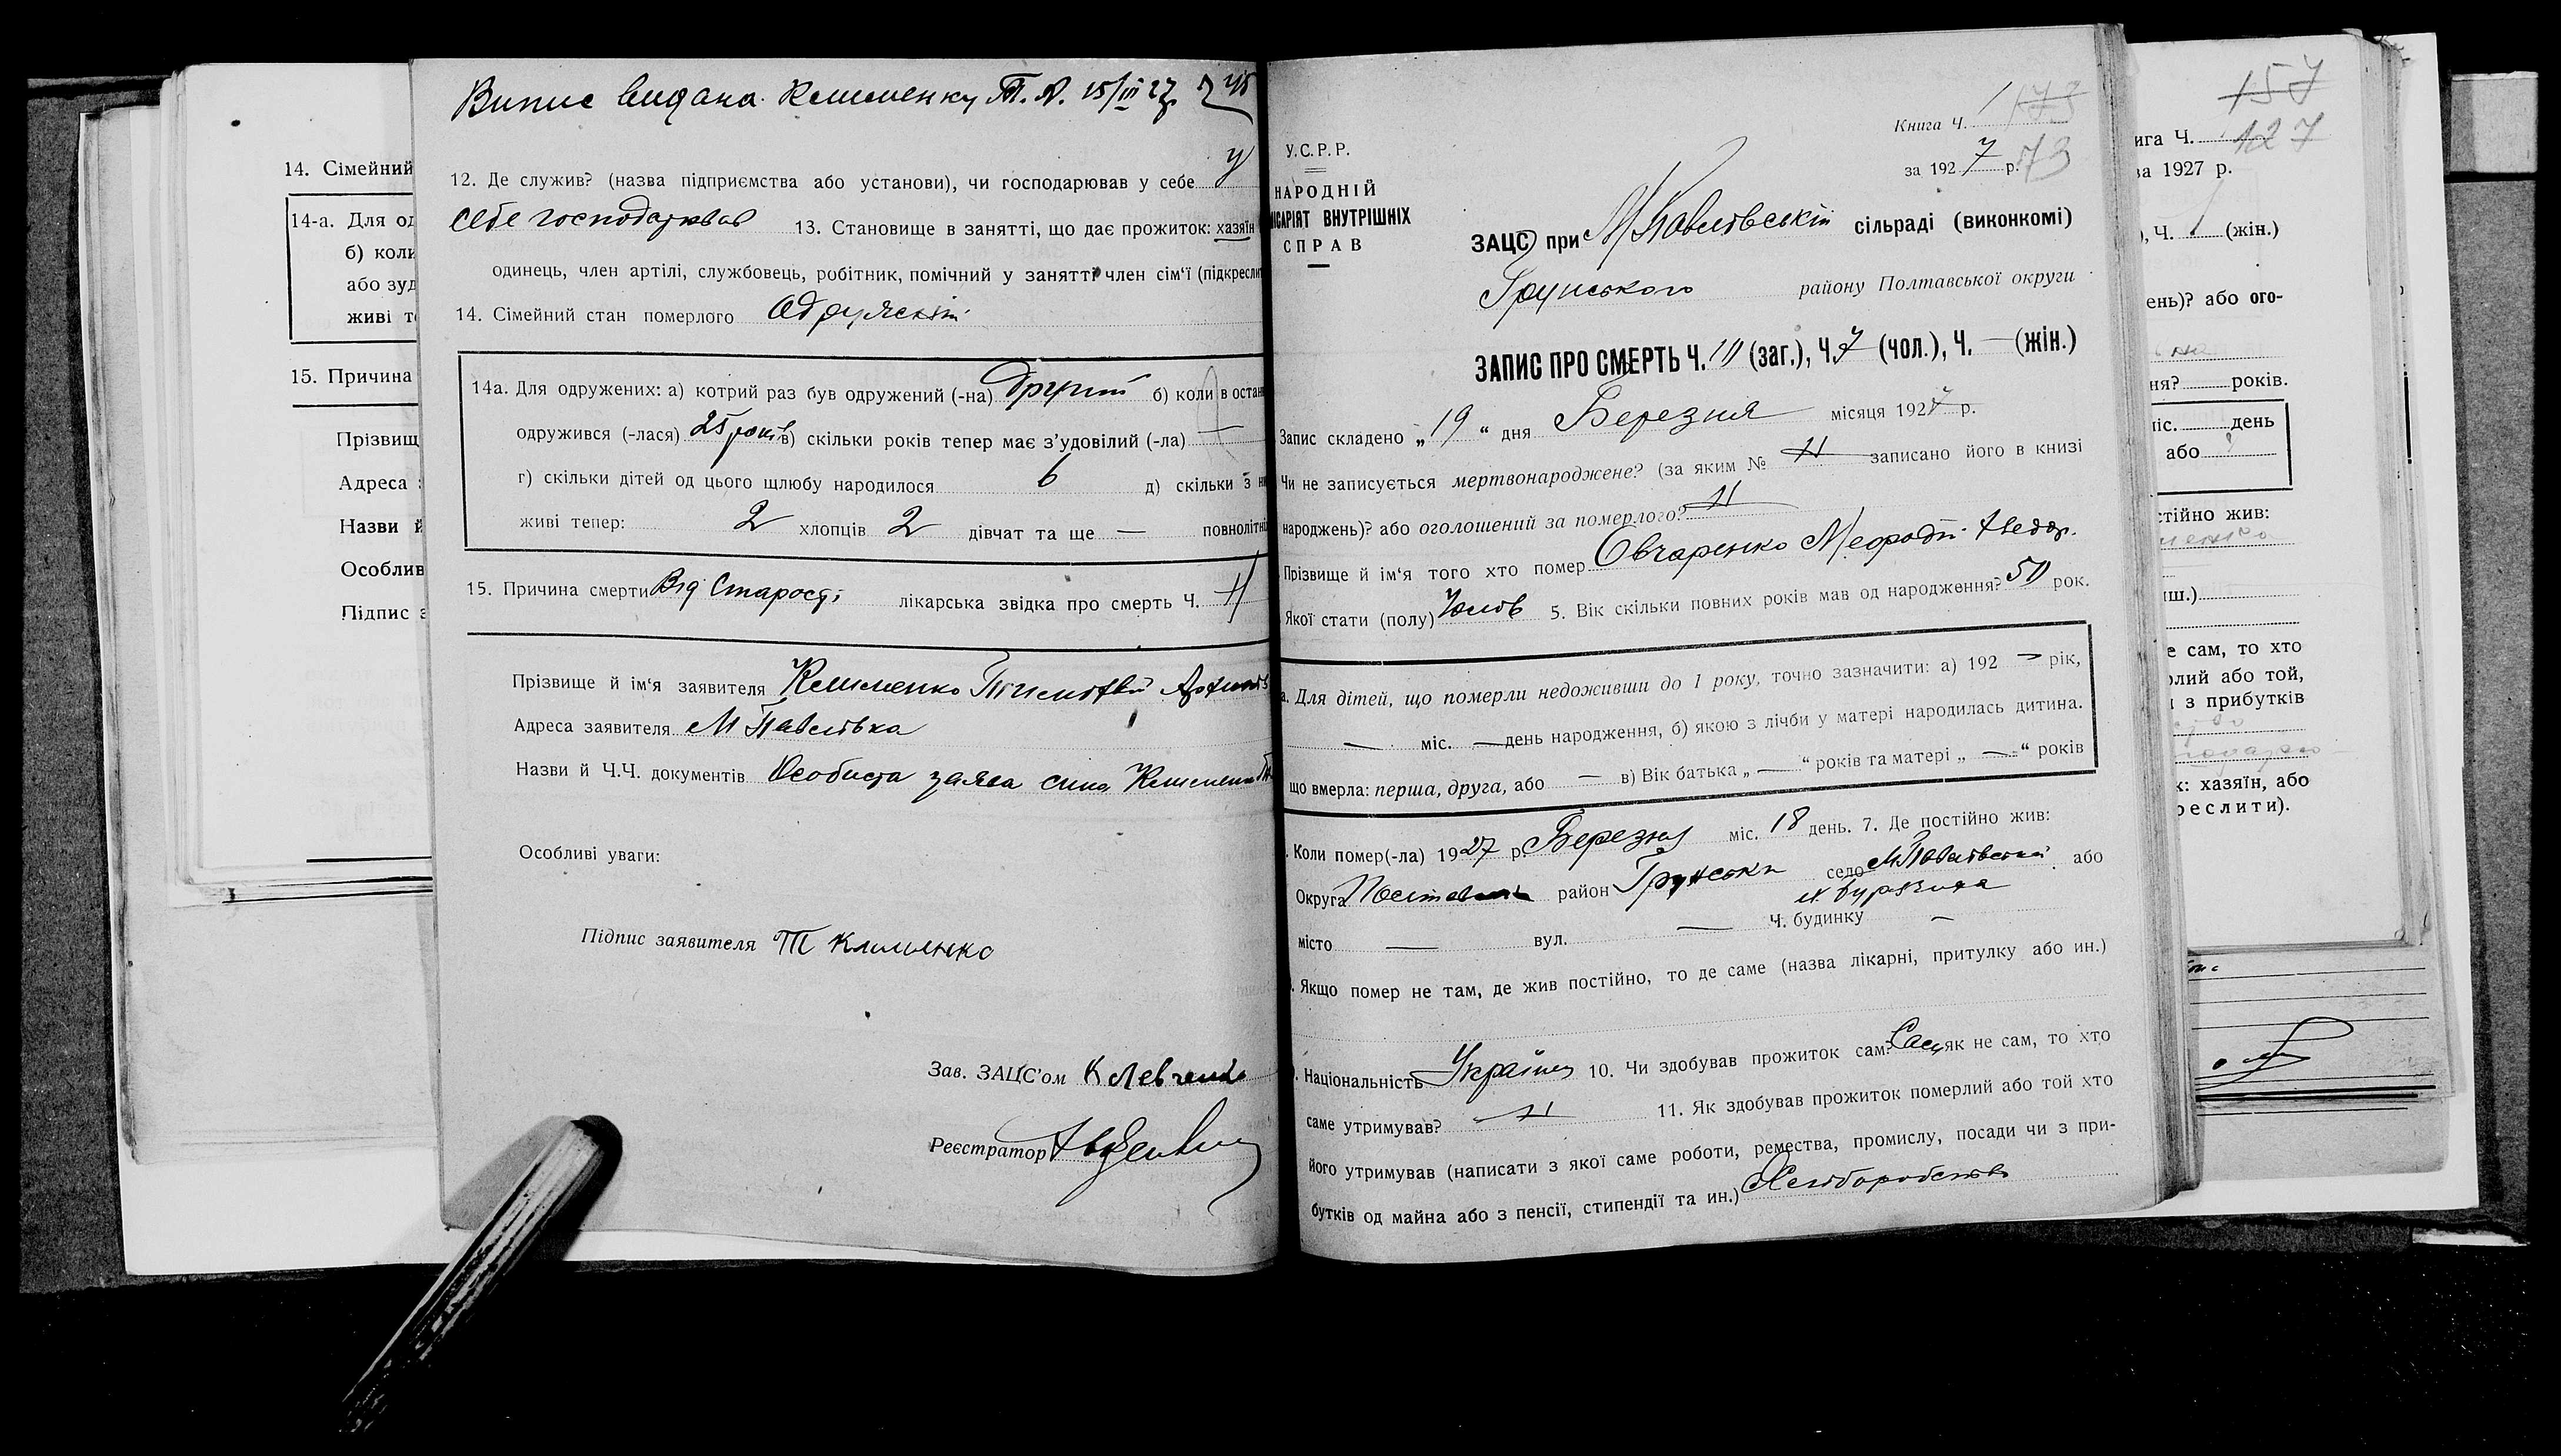 14. Сімейний
14-а. Для од
б) коли
або зуд
живі т
15. Причина
Прізвищ
Адреса
Назви й
Особлив
Підпис з
Випис видана Клименку Т. А. 15/III 27 р
12. Де служив? (назва підприємства або установи), чи господарював у себе у
себе господарював 13. Становище в занятті, що дає прожиток: хазяїн
одинець, член артілі, службовець, робітник, помічний у занятті член сім'ї (підкреслит
14. Сімейний стан померлого Одружений
14а. Для одружених: а) котрий раз був одружений (-на) Другий б) коли в остан
одружився (-лася) 25 років в) скільки років тепер має з'удовілий (-ла) —
г) скільки дітей од цього щлюбу народилося 6 д) скільки з н
живі тепер: 2 хлопців 2 дівчат та ще — повнолітні
15. Причина смерти Від Старості лікарська звідка про смерть Ч. Н
Прізвище й ім'я заявителя Клименко Тимофій
Адреса заявителя М Павлівка
Назви й Ч.Ч. документів Особиста заява сина Клименка
Особливі уваги:
Підпис заявителя Т Клименко
Зав. ЗАЦС'ом К Левченко
Реєстратор
Книга Ч. 1 173
за 192 7 р. 73
У.С.Р.Р.
НАРОДНІЙ
ІСАРІЯТ ВНУТРІШНІХ
СПРАВ
ЗАЦС при М Павлівській сільраді (виконкомі)
Грунського району Полтавської округи
ЗАПИС ПРО СМЕРТЬ Ч. 10 (заг.), Ч. 7 (чол.), Ч. — (жін.)
Запис складено „19" дня Березня місяця 1927 р.
Чи не записується мертвонароджене? (за яким № Н записано його в книзі
народжень)? або оголошений за померлого? Н
Прізвище й ім'я того хто помер Овчаренко Мефодій Федор.
Якої стати (полу) Чолов 5. Вік скільки повних років мав од народження? 50 рок.
а. Для дітей, що померли недоживши до 1 року, точно зазначити: а) 192 — рік,
— міс. — день народження, б) якою з лічби у матері народилась дитина.
що вмерла: перша, друга, або — в) Вік батька „ — " років та матері „ — " років
. Коли помер(-ла) 1927 р. Березня міс. 18 день. 7. Де постійно жив:
Округа Полтавська район Грунськи село М Павлівській або
х.
місто — вул. — Ч. будинку —
. Якщо помер не там, де жив постійно, то де саме (назва лікарні, притулку або ин.)
. Національність Українец 10. Чи здобував прожиток сам? Сам, як не сам, то хто
саме утримував? Н 11. Як здобував прожиток померлий або той хто
його утримував (написати з якої саме роботи, ремества, промислу, посади чи з при-
бутків од майна або з пенсії, стипендії та ин.) Хліборобство
157
ига Ч. 127
за 1927 р.
), Ч. 1 (жін.)
ень)? або ого-
ня? років.
міс. день
або
стійно жив:
иш.)
е сам, то хто
рлий або той,
и з прибутків
к: хазяїн, або
реслити).